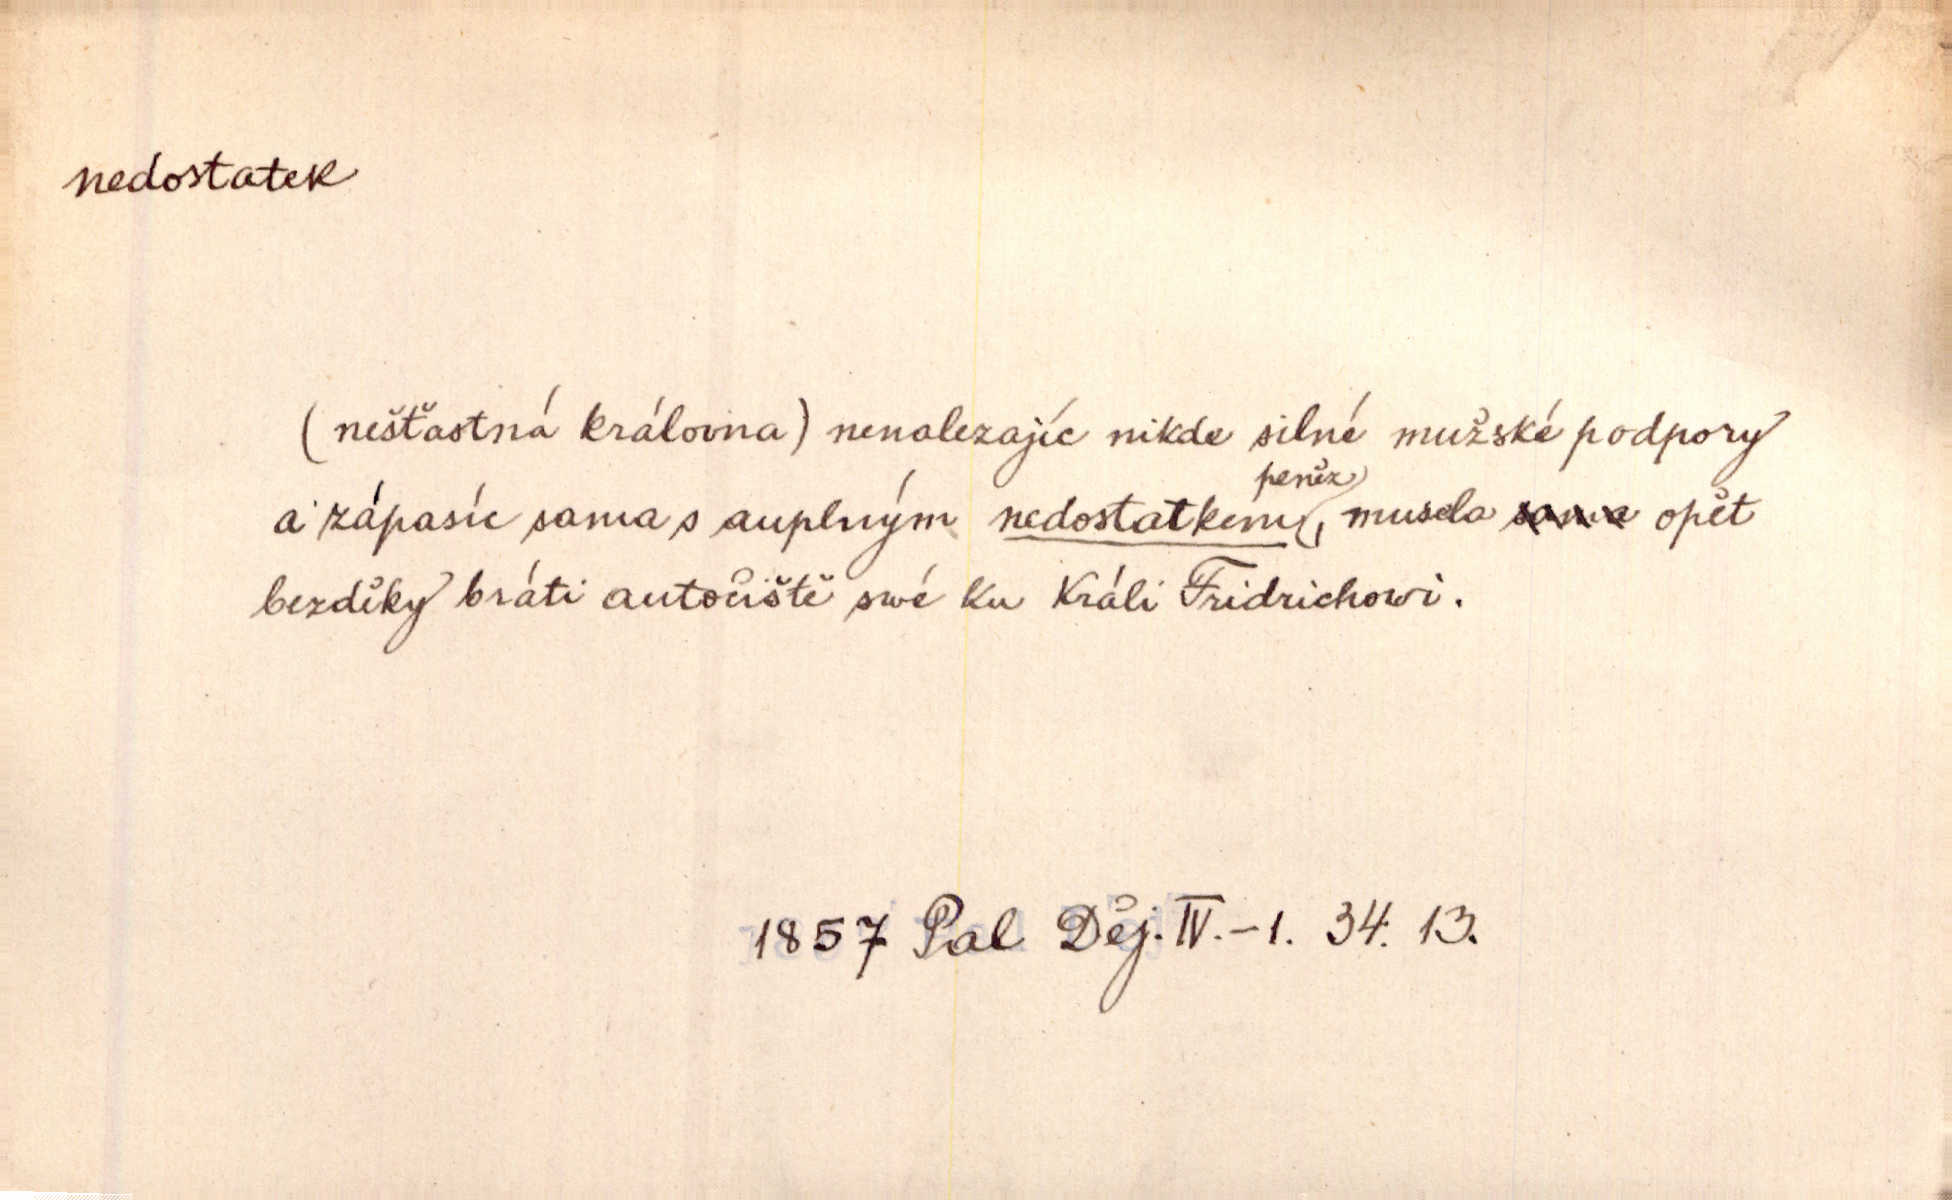 nedostatek
(nešťastná králowna) nenalezajíc nikde silné mužské podpory
a zápasíc sama s auplným nedostatkem peněz, musela sama opět
bezděky bráti autočiště swé ku králi Fridrichowi.
1857 Pal Děj. IV.-1. 34. 13.